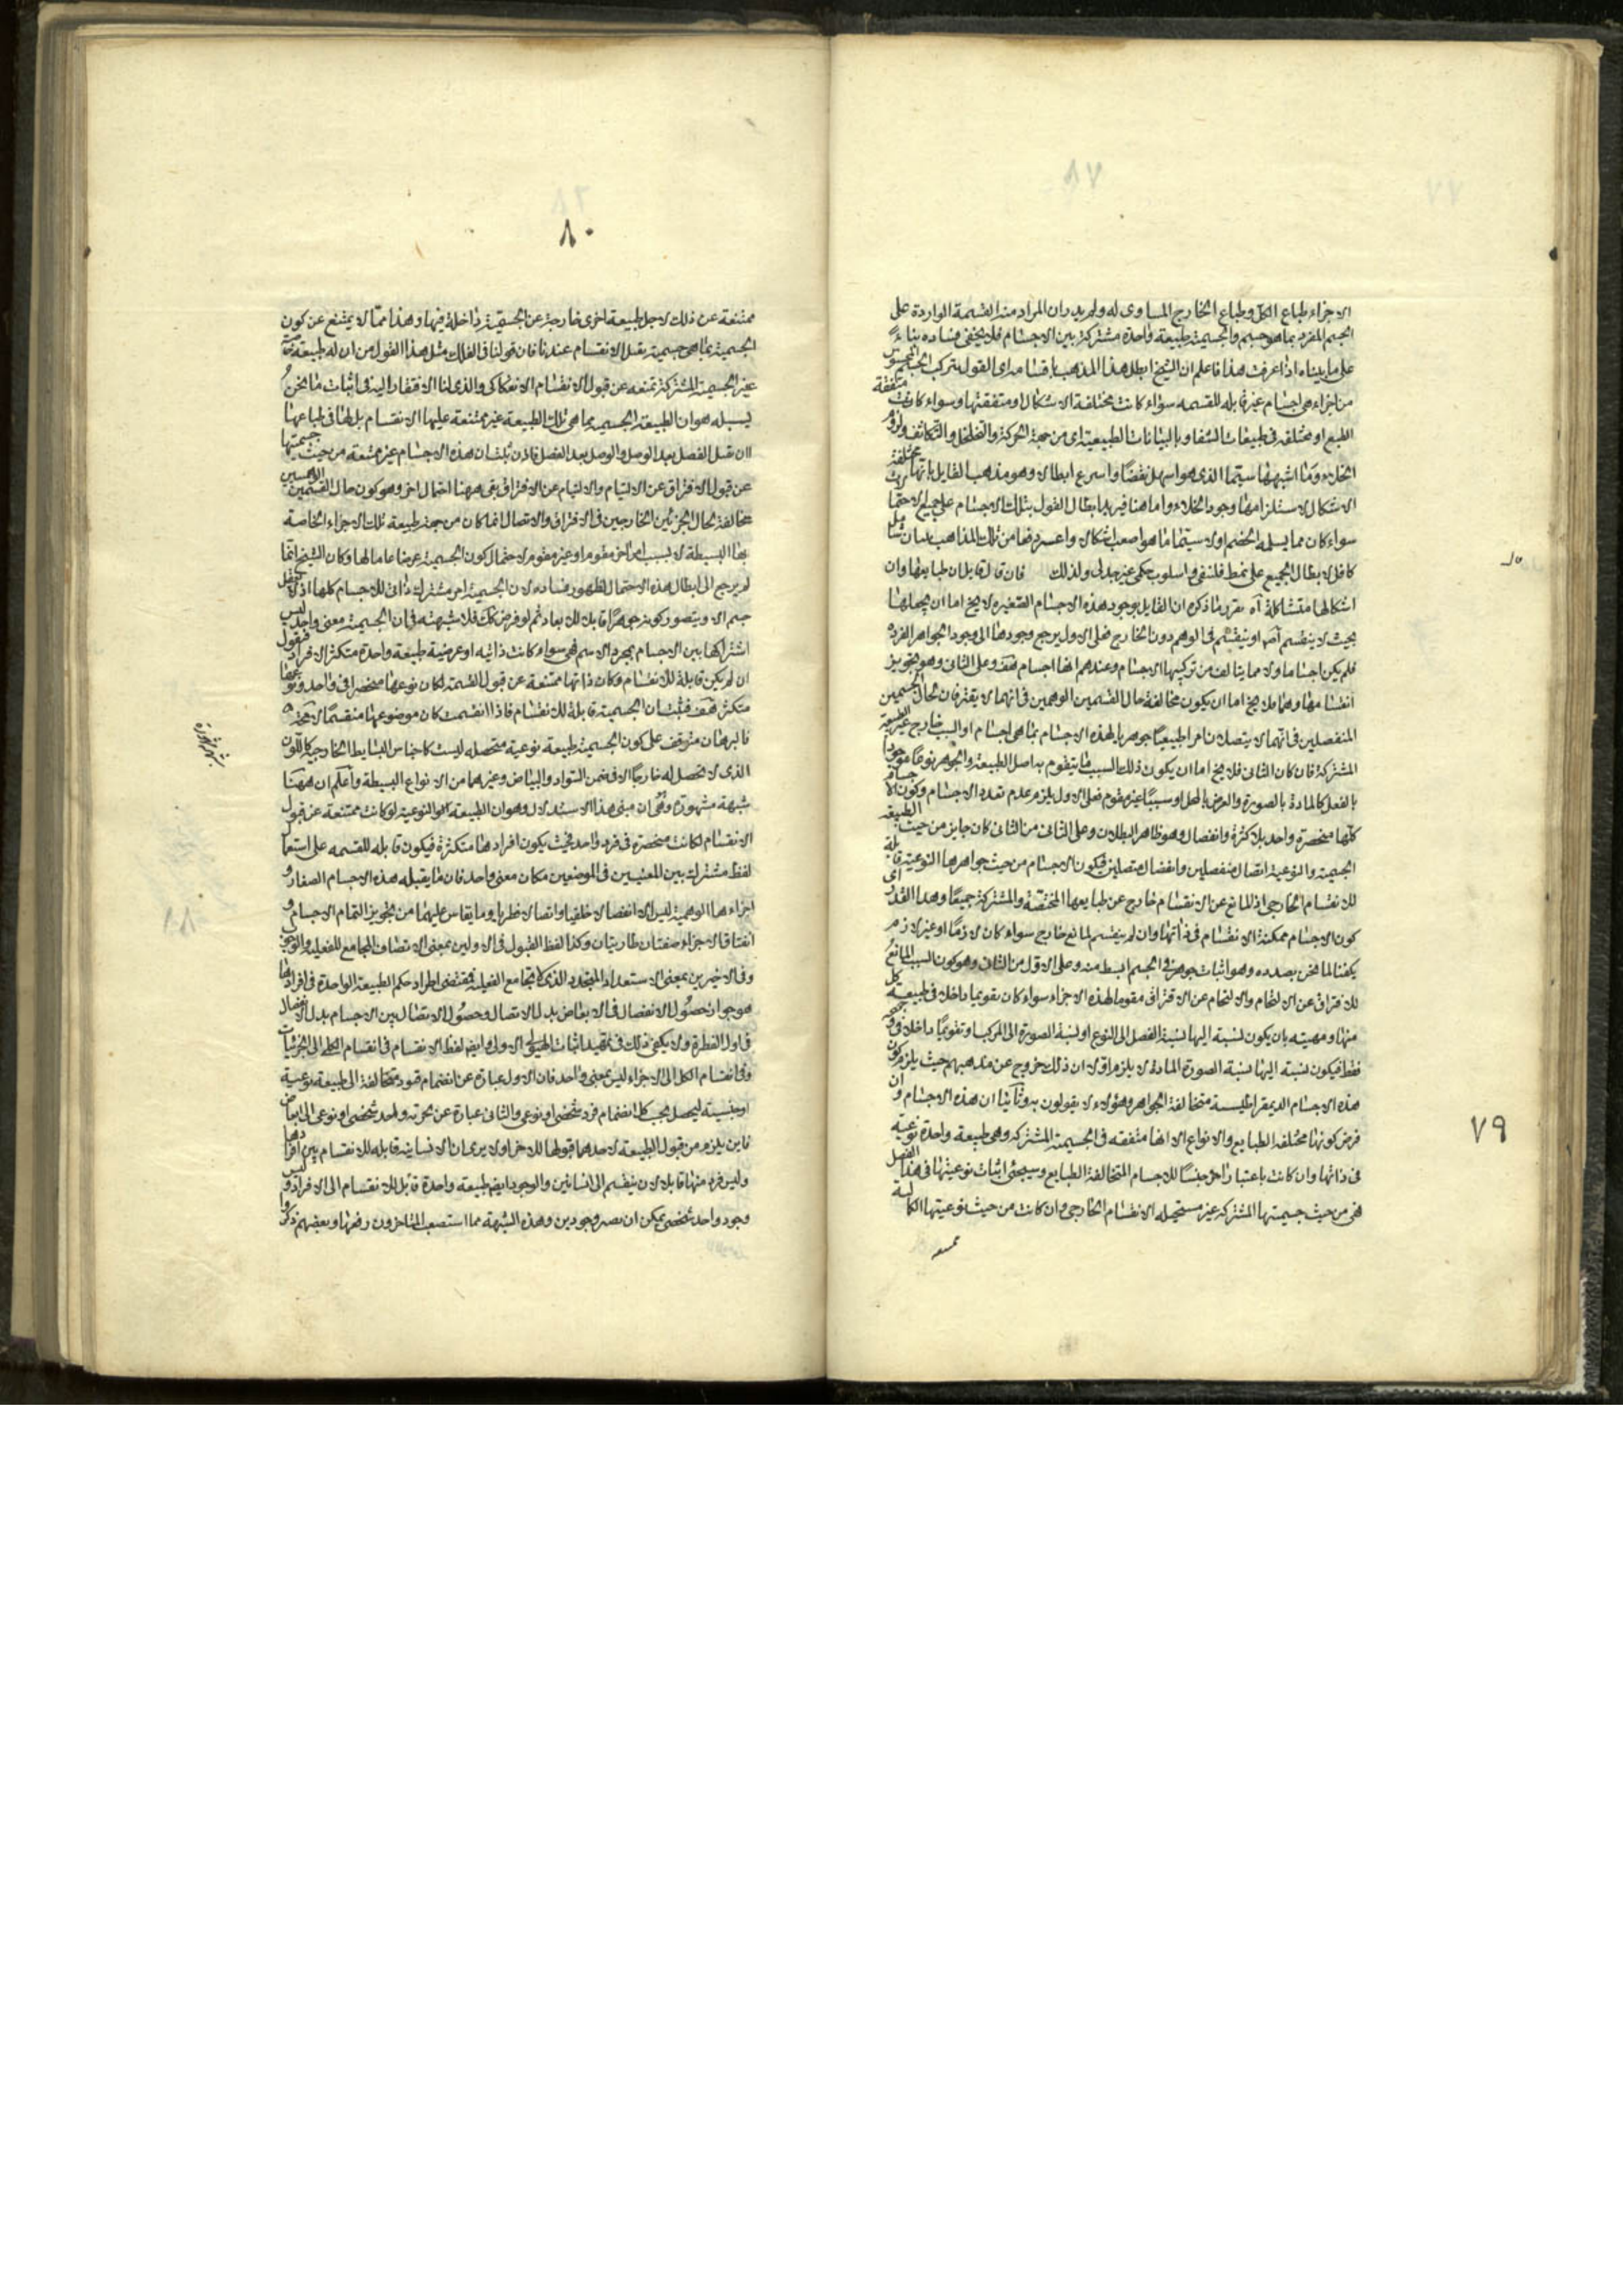 ٧٩
الاجزاء طباع الكل وطباع الخارج المساوى له ولم يرد ان المراد منه القسمة الواردة على
الجسم المفرد بما هو جسم والجسمية طبيعة واحدة مشتركة بين الاجسام فلا يخفى فساده بناءً
على ما بيناه اذا عرفت هذا فاعلم ان الشيخ ابطل هذا المذهب باقسامه اى القول بتركب الجسم المحسوس
من اجزاء هى اجسام غير قابله للقسمه سواء كانت مختلفة الاشكال او متفقتها وسواء كانت متفقة
الطبع او مختلفه فى طبيعات الشفا وبالبيانات الطبيعية اى من جهة الحركة والتخلخل والتكاثف ولزوم
الخلاء وما اشبهها سيما الذى هو اسهل نقضا واسرع ابطالا وهو مذهب القايل بانها مختلفة
الاشكال لاستلزامها وجود الخلاء واما هنا فيريد ابطال القول بتلك الاجسام على جميع الاحتمالات
سواء كان مما يسلمه الخصم اولا سيما ما هو اصعب اشكالا واعسر دفعا من تلك المذاهب
كافل لابطال الجميع على نمط فلسفى واسلوب حكمى غير جدلى ولذلك فان قال قايل ان طبايعها وان
اشكالها متشاكلة آه تقرير ما ذكره ان القايل بوجود هذه الاجسام الصغيره لا يخ اما ان يجعلها
بحيث لا ينقسم اصلا او ينقسم فى الوهم دون الخارج فعلى الاول يرجع وجودها الى وجود الجواهر الفرده
فلم يكن اجساما ولا مما يتالف من تركيبها الاجسام وعندهم انها اجسام هف وعلى الثانى وهو تجويز
انقسامها وهما فلا يخ اما ان يكون مخالفة حال القسمين الوهمين فى انهما لا يفترقان لحال الجسمين
المنفصلين فى انهما لا يتصلان امرا طبيعيا جوهريا لهذه الاجسام بما هى اجسام او السبب خارج عن الطبيعة
المشتركة فان كان الثانى فلا يخ اما ان يكون ذلك السبب مما يتقوم به اصل الطبيعة والجوهر نوعا موجودا
بالفعل كالمادة بالصورة والعرض بالمحل او سببا غير مقوم فعلى الاول يلزم عدم تعدد الاجسام وكون الاجسام
كلها منحصرة واحد بلا كثرة وانفصال وهو ظاهر البطلان وعلى الثانى من الثانى كان جايز من حيث الطبيعة
الجسمية والنوعية اتصال منفصلين وانفصال متصلين فيكون الاجسام من حيث جواهرها النوعية قابلة
للانقسام الخارجى اذ المانع عن الانقسام خارج عن طبايعها المختصة والمشتركة جميعًا وهذا القدر اى
كون الاجسام ممكنة الانقسام فى ذاتها وان لم ينقسم لمانع خارج سواء كان لازمًا او غير لازم
يكفنا لما نحن بصدده وهو اثبات جوهر فى الجسم ابسط منه وعلى الاول من الثانى وهو كون السبب المانع
للافتراق عن الالتحام والالتحام عن الافتراق مقوما لهذه الاجزاء سواء كان تقويما داخلا فى طبيعة كل
منها ومهيته بان يكون نسبته اليها نسبة الفصل الى النوع او نسبة الصورة الى المركب او تقويمًا داخلا فى وجوده
فقط فيكون نسبته اليها نسبة الصورة المادة لا يلزم اولا ان ذلك خروج عن مذهبهم حيث يلزم كون
هذه الاجسام الديمقراطيسية متخالفة الجواهر وهؤلاء لا يقولون به وثانيا ان هذه الاجسام وان
فرض كونها مختلفه الطبايع والانواع الا انها متفقه فى الجسمية المشتركه وهى طبيعة واحدة نوعية
فى ذاتها وان كانت باعتبار اخر جنسًا للاجسام المتخالفة الطبايع وسيجئ اثبات نوعيتها فى هذا الفصل
فهى من حيث جسميتها المشتركه غير مستحيله الانقسام الخارجى وان كانت من حيث نوعيتها الكاملة
ممتنعه
٨٠
ممتنعة عن ذلك لاجل طبيعة اخرى خارجة عن الجسمية داخلة فيها وهذا مما لا يمتنع عن كون
الجسمية بما هى جسمية يقبل الانقسام عندنا فان قولنا فى الفلك مثل هذا القول من ان له طبيعة خاصة
غير الجسمية المشتركة تمنعه عن قبول الانقسام الانفكاكى والذى لنا الافتقار اليه فى اثبات ما نحن
بسبيله هو ان الطبيعة الجسميه بما هى تلك الطبيعة غير ممتنعة عليها الانقسام بل لها فى طباعها
ان تقبل الفصل بعد الوصل والوصل بعد الفصل فاذن ثبت ان هذه الاجسام غير ممتنعة من حيث جسميتها
عن قبول الافتراق عن الالتيام والالتيام عن الافتراق بقى ههنا احتمال اخر وهو كون حال القسمين الوهميين
مخالفة لحال الجزئين الخارجين فى الافتراق والاتصال انما كان من جهة طبيعة تلك الاجزاء الخاصة
بها البسيطة لا بسبب امر اخر مقوم او غير مقوم لاحتمال كون الجسمية عرضا عاما لها وكان الشيخ انما
لم يرجع الى ابطال هذه الاحتمال لظهور فساده لان الجسمية امر مشترك ذاتى للاجسام كلها اذ لا يعقل
جسم الا ويتصور كونه جوهرًا قابلا للابعاد ثم لو فرض ذلك فلا شبهة فى ان الجسمية معنى واحد ليس
اشتراكها بين الاجسام بمجرد الاسم فهى سواء كانت ذاتيه او عرضية طبيعة واحدة متكثر الافراد فنقول
ان لم يكن قابلة للانقسام وكان ذاتها ممتنعة عن قبول القسمة لكان نوعها منحصرا فى واحد ونوعها
متكثر هف فثبت ان الجسمية قابلة للانقسام فاذا انقسمت كان موضوعها منقسمًا لا محة
فالبرهان متوقف على كون الجسمية طبيعة نوعية متحصله ليست كاجناس البسايط الخارجية كاللون
الذى لا تحصل له خارجًا الا فى ضمن السواد والبياض وغيرهما من الانواع البسيطة واعلم ان ههنا
شبهة مشهورة وهى ان مبنى هذا الاستدلال وهو ان الطبيعة النوعية لو كانت ممتنعة عن قبول
الانقسام لكانت منحصرة فى فرد واحد فحيث يكون افرادها متكثرة فيكون قابله للقسمه على استعمال
لفظ مشترك بين المعنيين فى الموضعين مكان معنى واحد فان ما يقبله هذه الاجسام الصغار و
اجزاءها الوهمية ليس الا انفصالا خلقيا واتصالا فطريا وما يقاس عليهما من تجويز التيام الاجسام و
افتاق الاجزاء صفتان طاريتان وكذا لفظ القبول فى الاولين بمعنى الاتصاف المجامع للفعليه والوجوب
وفى الاخيرين بمعنى الاستعداد المتجدد الذى لا يجامع الفعلية فمقتضى اطراد حكم الطبيعة الواحدة فى افرادها
هو جواز حصول الانفصال فى الابعاض بدل الاتصال وحصول الاتصال بين الاجسام بدل الانفصال
فى اول الفطرة ولا يكفى ذلك فى تمهيد اثبات الهيولى الاولى وايضا لفظ الانقسام فى انقسام الكلى الى الجزئيات
وفى انقسام الكل الى الاجزاء ليس بمعنى واحد فان الاول عبارة عن انضمام قيود متخالفة الى طبيعة نوعية
او جنسية ليحصل بحسب كل انضمام فرد شخصى او نوعى والثانى عبارة عن تجزية واحد شخصى او نوعى الى ابعاض
فاين يلزم من قبول الطبيعة لاحدهما قبولها للاخر اولا يرى ان الانسانية قابله للانقسام بين افرادها
وليس فرد منها قابلا لان ينقسم الى انسانين والوجود ايضا طبيعة واحدة قابل للانقسام الى الافراد وليس
وجود واحد شخصى يمكن ان يصير وجودين وهذه الشبهة مما استصعب المتاخرون دفعها وبعضهم ذكروا